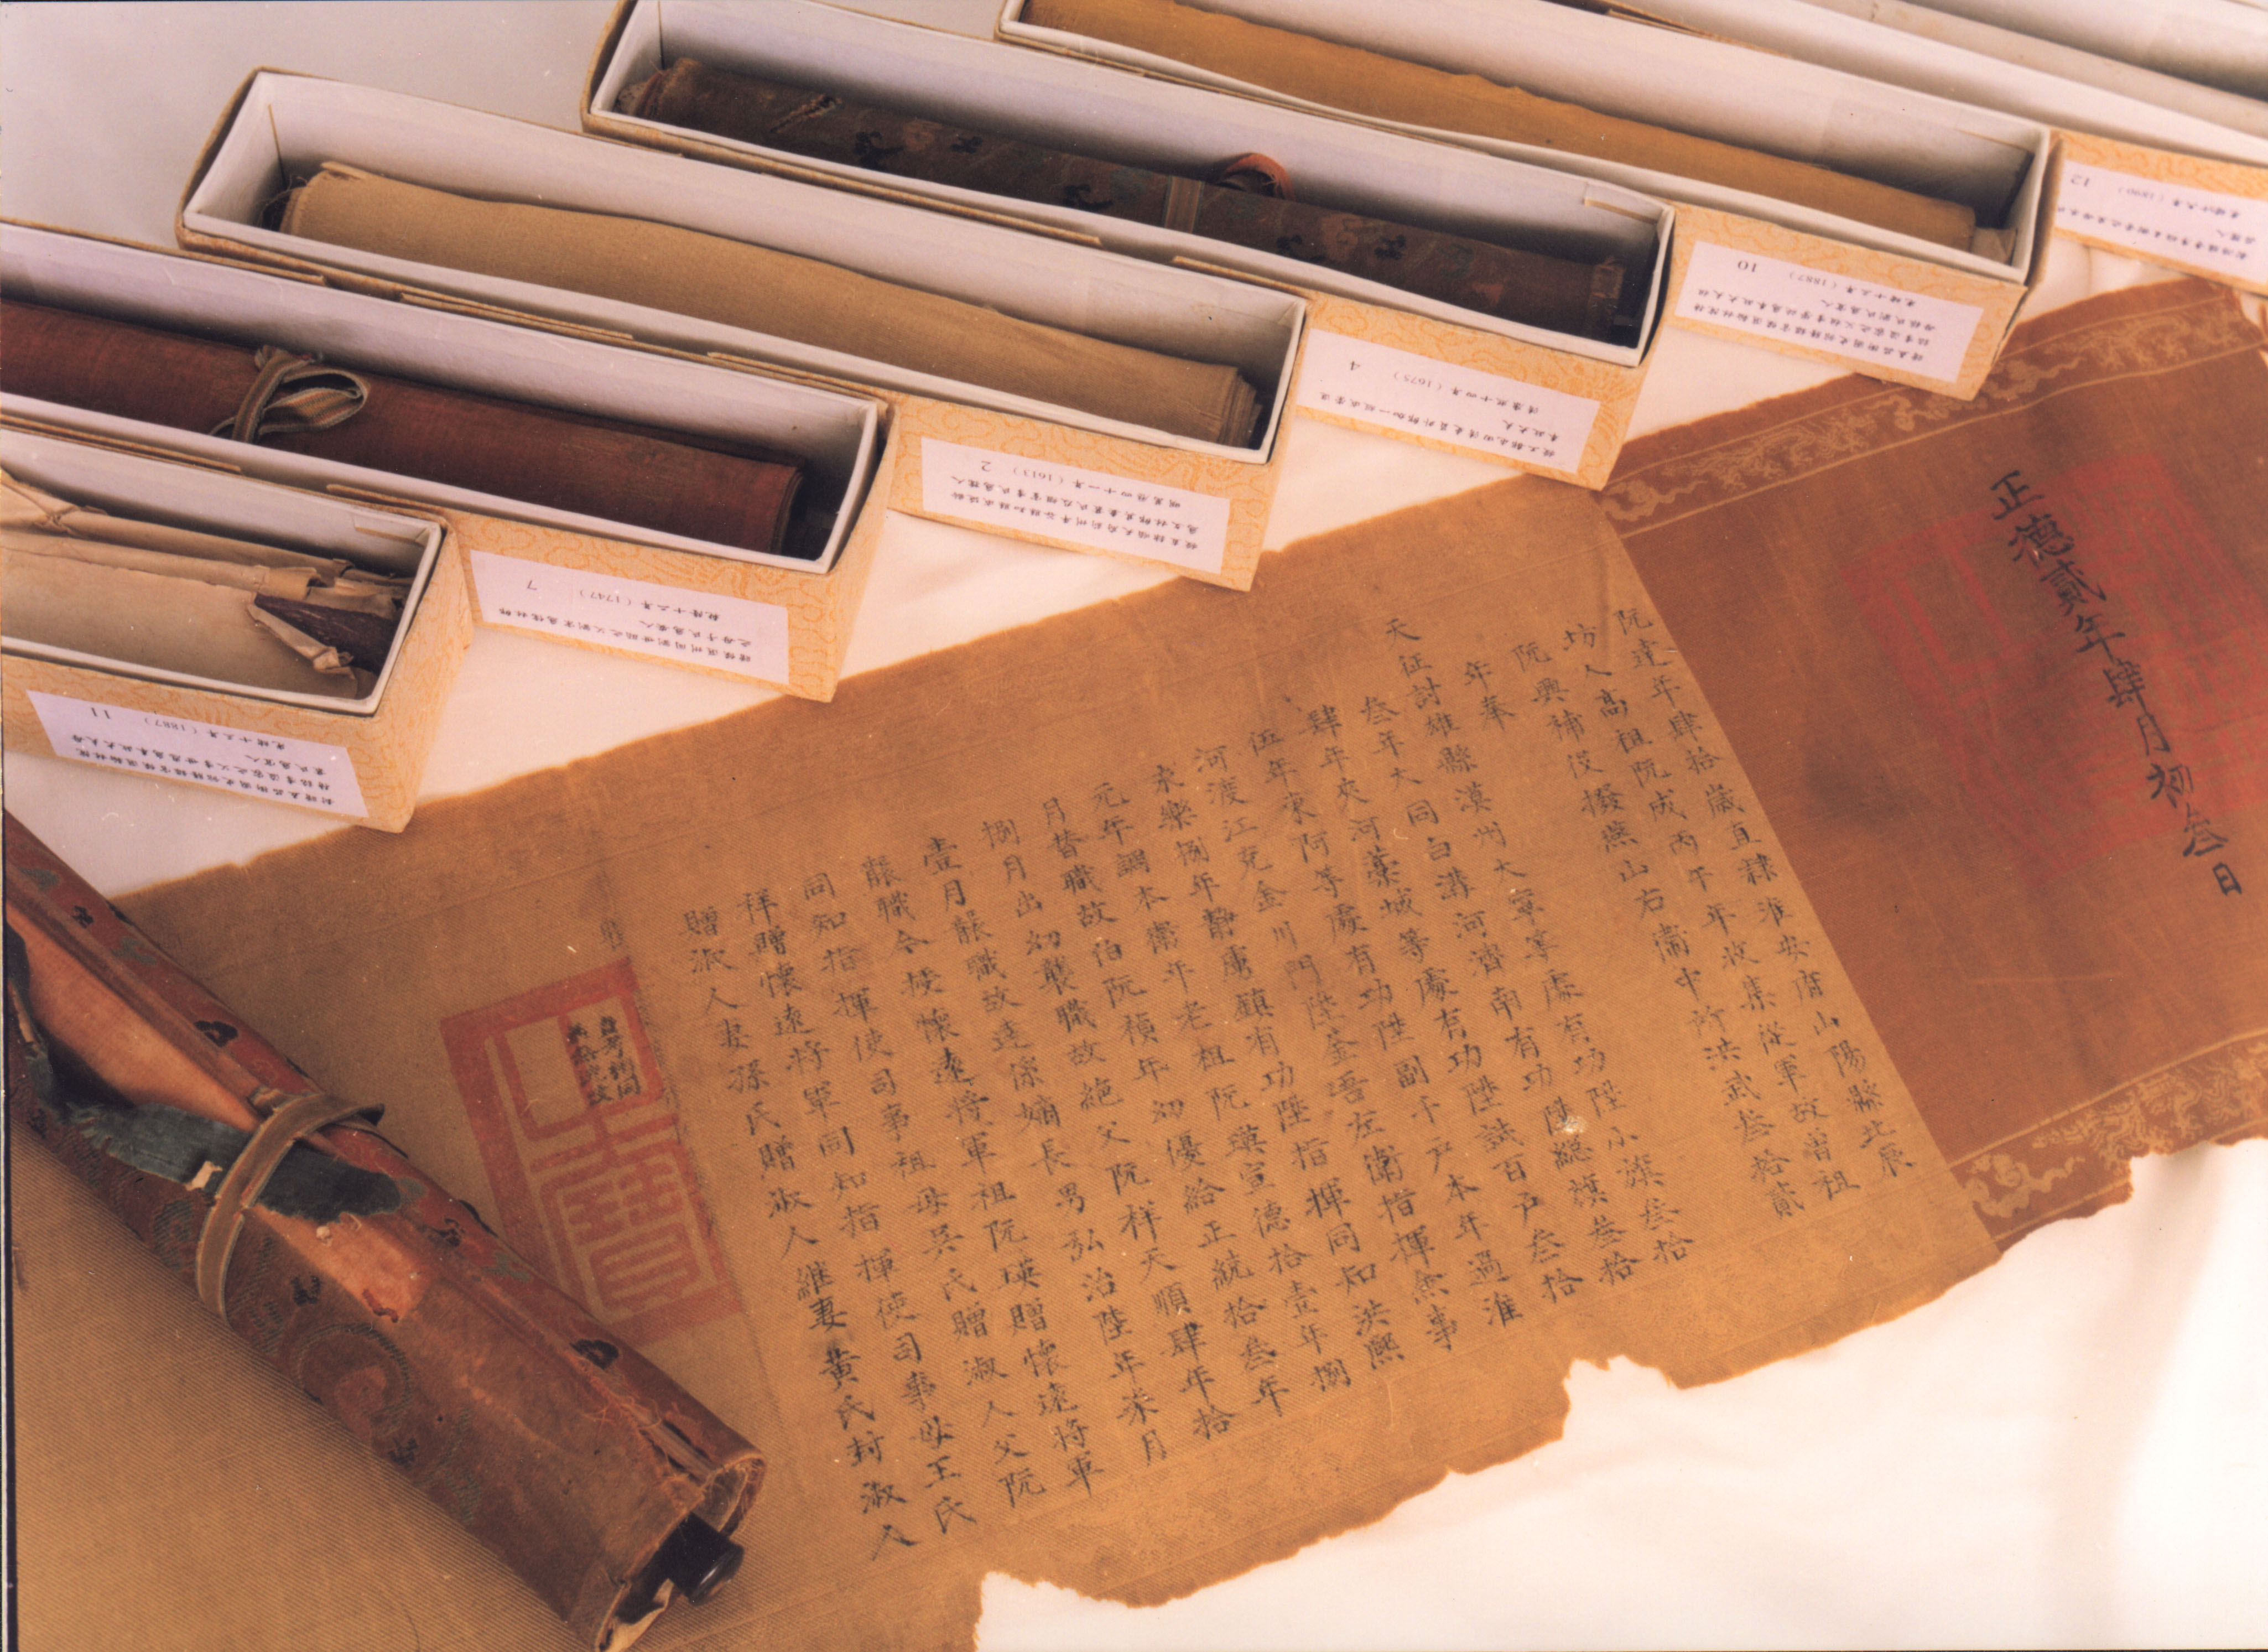 正德貳年肆月初叁日
阮達年肆拾歲直隸淮安府山陽縣北辰
坊人高祖阮成丙午年收集從軍故曾祖
阮興補役撥燕山右衛中所洪武叁拾貳
年奉
天征討雄縣漠州大寧等處有功陞小旗叁拾
叁年大同白溝河濟南有功陞總旗叁拾
肆年夾河藁城等處有功陞試百戶叁拾
伍年東阿等處有功陞副千戶本年過淮
河渡江克金川門陞金吾左衛指揮僉事
永樂捌年靜虜鎮有功陞指揮同知洪熙
元年調本衛年老祖阮瑛宣德拾壹年捌
月替職故伯阮禎年幼優給正統拾叁年
捌月出幼襲職故絕父阮祥天順肆年拾
壹月襲職故達係嫡長男弘治陸年柒月
襲職今授懷遠將軍祖阮瑛贈懷遠將軍
同知指揮使司事祖母吳氏贈淑人父阮
祥贈懷遠將軍同知指揮使司事母王氏
贈淑人妻孫氏贈淑人繼妻黃氏封淑人
12
光緒十六年（1890）
10
光緒十三年（1887）
4
清康熙十四年（1675）
2
明萬曆四十一年（1613）
7
乾隆十二年（1747）
11
光緒十三年（1887）